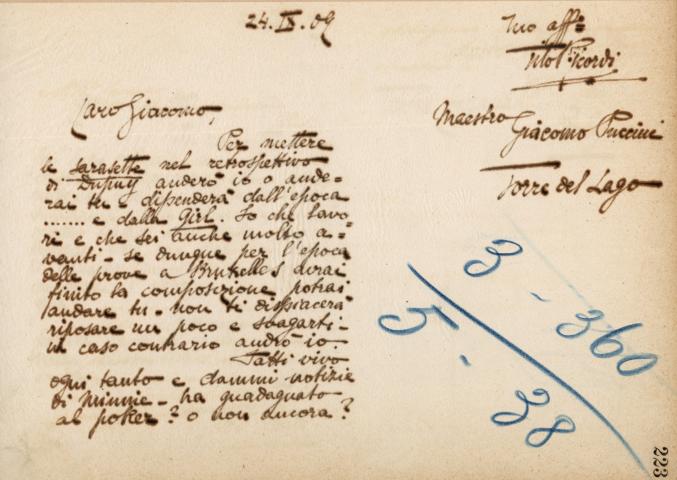 24.IX.09
Caro Giacomo,
Per mettere
le sarasette nel retrospettivo
di Dupuy anderò io o ande-
rai tu e dipenderà dall'epoca
...... e dalla Girl. So che lavo-
ri e che sei anche molto a-
vanti - se dunque per l'epoca
delle prove a Bruxelles avrai
finito la composizione potrai
andare tu - non ti dispiacerà
riposare un poco e svagarti -
in caso contrario andrò io.
Fatti vivo
ogni tanto e dammi notizie
di Minnie - ha guadagnato
al poker? o non ancora?
Tuo aff:
Tito Ricordi
Maestro
Giacomo Puccini
Torre del Lago
3 - 360
5 - 38
223